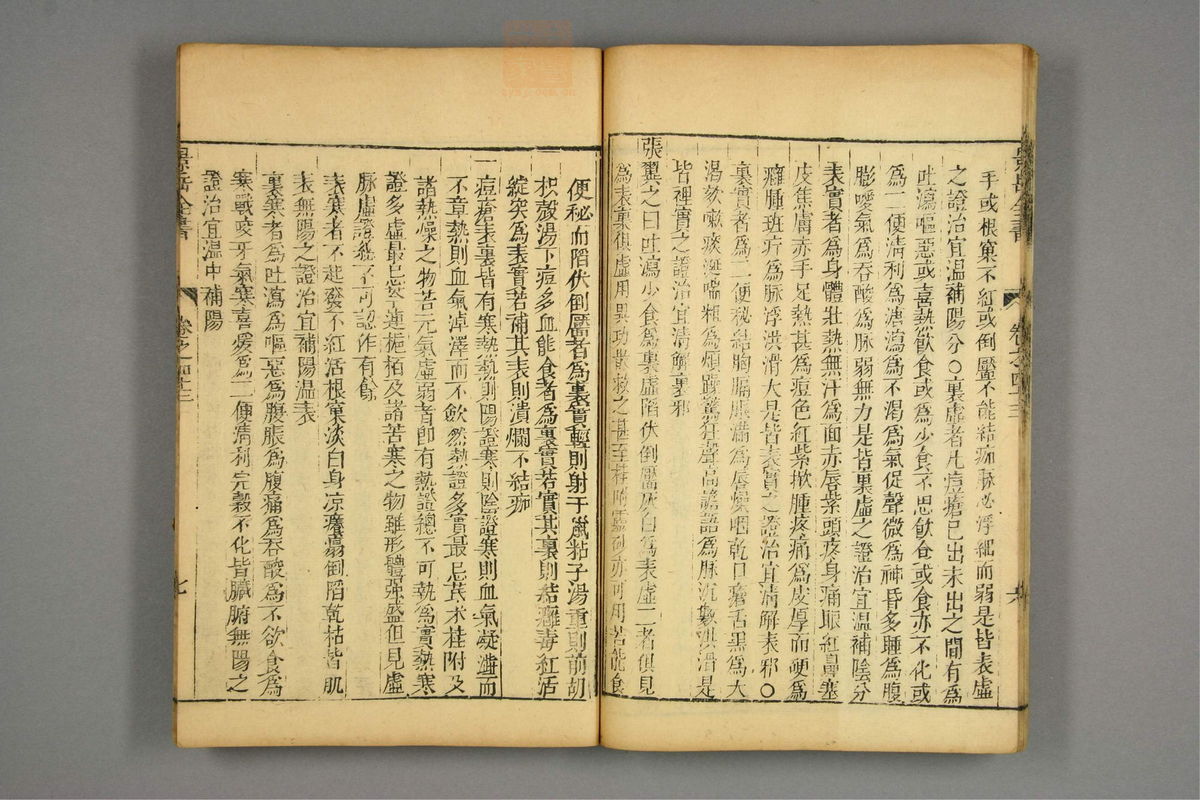 景岳全書 卷之四十三 六
手或根窠不紅或倒靨不能結痂脉必浮細而弱是皆表虛
之證治宜温補陽分○裏虛者凡痘瘡已出未出之間有爲
吐瀉嘔惡或喜熱飲食或爲少食不思飲食或食亦不化或
爲二便清利爲溏瀉爲不渴爲氣促聲微爲神昏多睡爲腹
膨噯氣爲吞酸爲脉弱無力是皆裏虛之證治宜温補陰分
表實者爲身體壯熱無汗爲面赤唇紫頭疼身痛眼紅鼻塞
皮焦膚赤手足熱甚爲痘色紅紫掀腫疼痛爲皮厚而硬爲
癰腫班疔爲脉浮洪滑大是皆表實之證治宜清解表邪○
裏實者爲二便秘結胸膈脹滿爲唇燥咽乾口瘡舌黑爲大
渴欬嗽痰涎喘粗爲煩躁驚狂聲高譫語爲脉沉數洪滑是
皆裡實之證治宜清解裏邪
張翼之曰吐瀉少食爲裏虛陷伏倒靨灰白爲表虛二者俱見
爲表裏俱虛用異功散救之甚至桂附靈砂亦可用若能食
便秘而陷伏倒靨者爲裏實輕則射干鼠粘子湯重則前胡
枳殼湯下痘多血能食者爲裏實若實其裏則結癰毒紅活
綻突爲表實若補其表則潰爛不結痂
一痘瘡表裏皆有寒熱熱則陽證寒則陰證寒則血氣凝濇而
不章熱則血氣淖澤而不斂然熱證多實最忌芪术桂附及
諸熱燥之物苦元氣虛弱者卽有熱證總不可執爲實熱寒
證多虛最忌芩連梔栢及諸苦寒之物雖形體强盛但見虛
脉虛證總不可認作有餘
表寒者不起發不紅活根窠淡白身凉癢塌倒陷乾枯皆肌
表無陽之證治宜補陽温表
裏寒者爲吐瀉爲嘔惡爲腹脹爲腹痛爲吞酸爲不欲食爲
寒戰咬牙氣寒喜煖爲二便清利完穀不化皆臟腑無陽之
證治宜温中補陽
景岳全書 卷之四十三 七